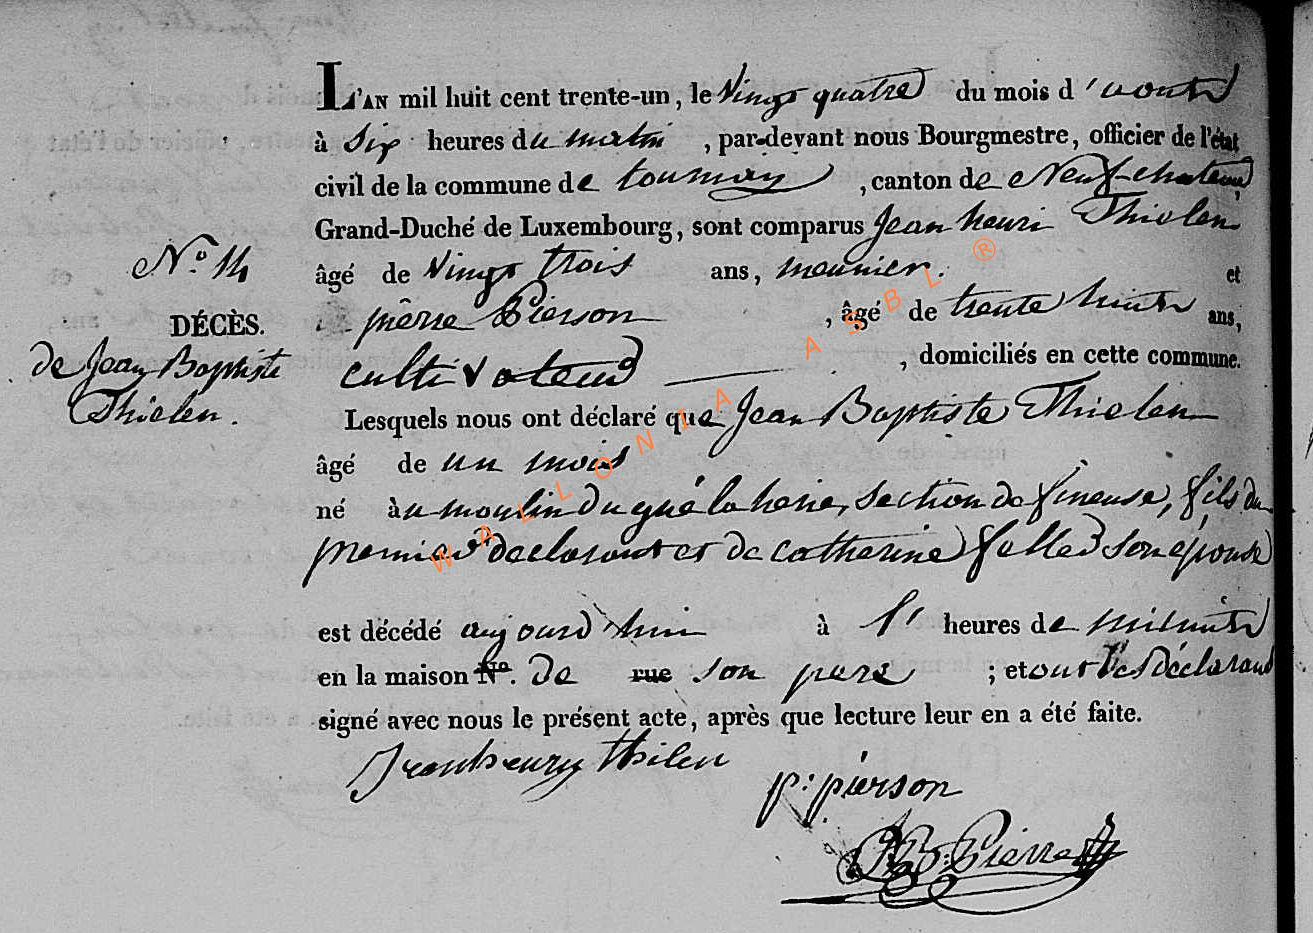 L'AN mil huit cent trente-un, le vingt quatre du mois d'
à six heures du matin, par-devant nous Bourgmestre, officier de l'état
civil de la commune de tournay, canton de Neufchateau,
Grand-Duché de Luxembourg, sont comparus Jean henri Thielen
N.º 14
âgé de vingt trois ans, meunier. et
DÉCÈS.
pierre Pierson, âgé de trente huit ans,
de Jean Baptiste
cultivateur, domiciliés en cette commune.
Thielen.
Lesquels nous ont déclaré que Jean Baptiste Thielen
âgé de un mois
né au moulin du gué la hérie, section de fineuse, fils du
premier declarant et de catherine son épouse
est décédé aujourd'hui à 1' heures de minuit
en la maison Nº. de rue son pere ; et ont les déclarans
signé avec nous le présent acte, après que lecture leur en a été faite.
Jean henry thilen
p: pierson
B: Pierre
WALLONIA ASBL ®